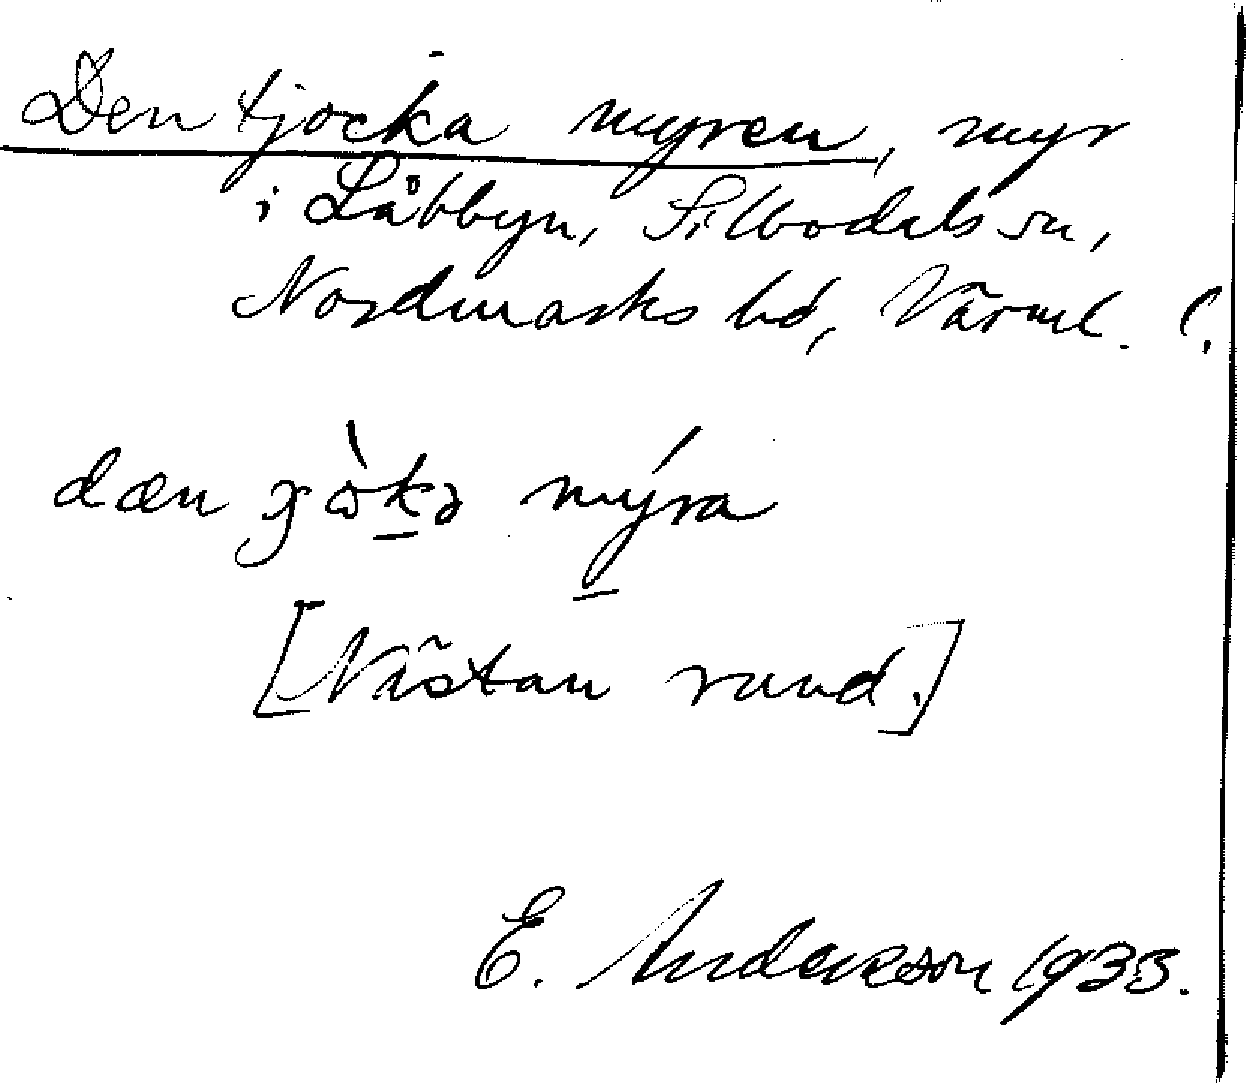 Den tjocka myren, myr
i Låbbyn, Silbodals sn,
Nordmarks hd, Värml. l.
dæn ɡò̱kə mýra
[Nästan rund.]
E. Anderson 1933.